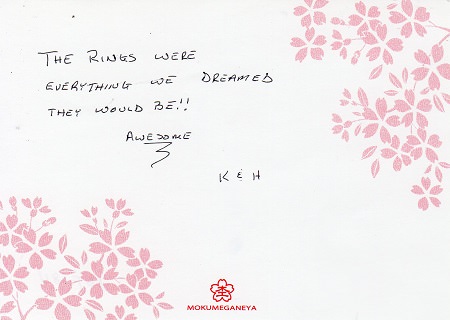 THE RINGS WERE
EVERYTHING WE DREAMED
THEY WOULD BE!!
AWESOME
K & H
MOKUMEGANEYA